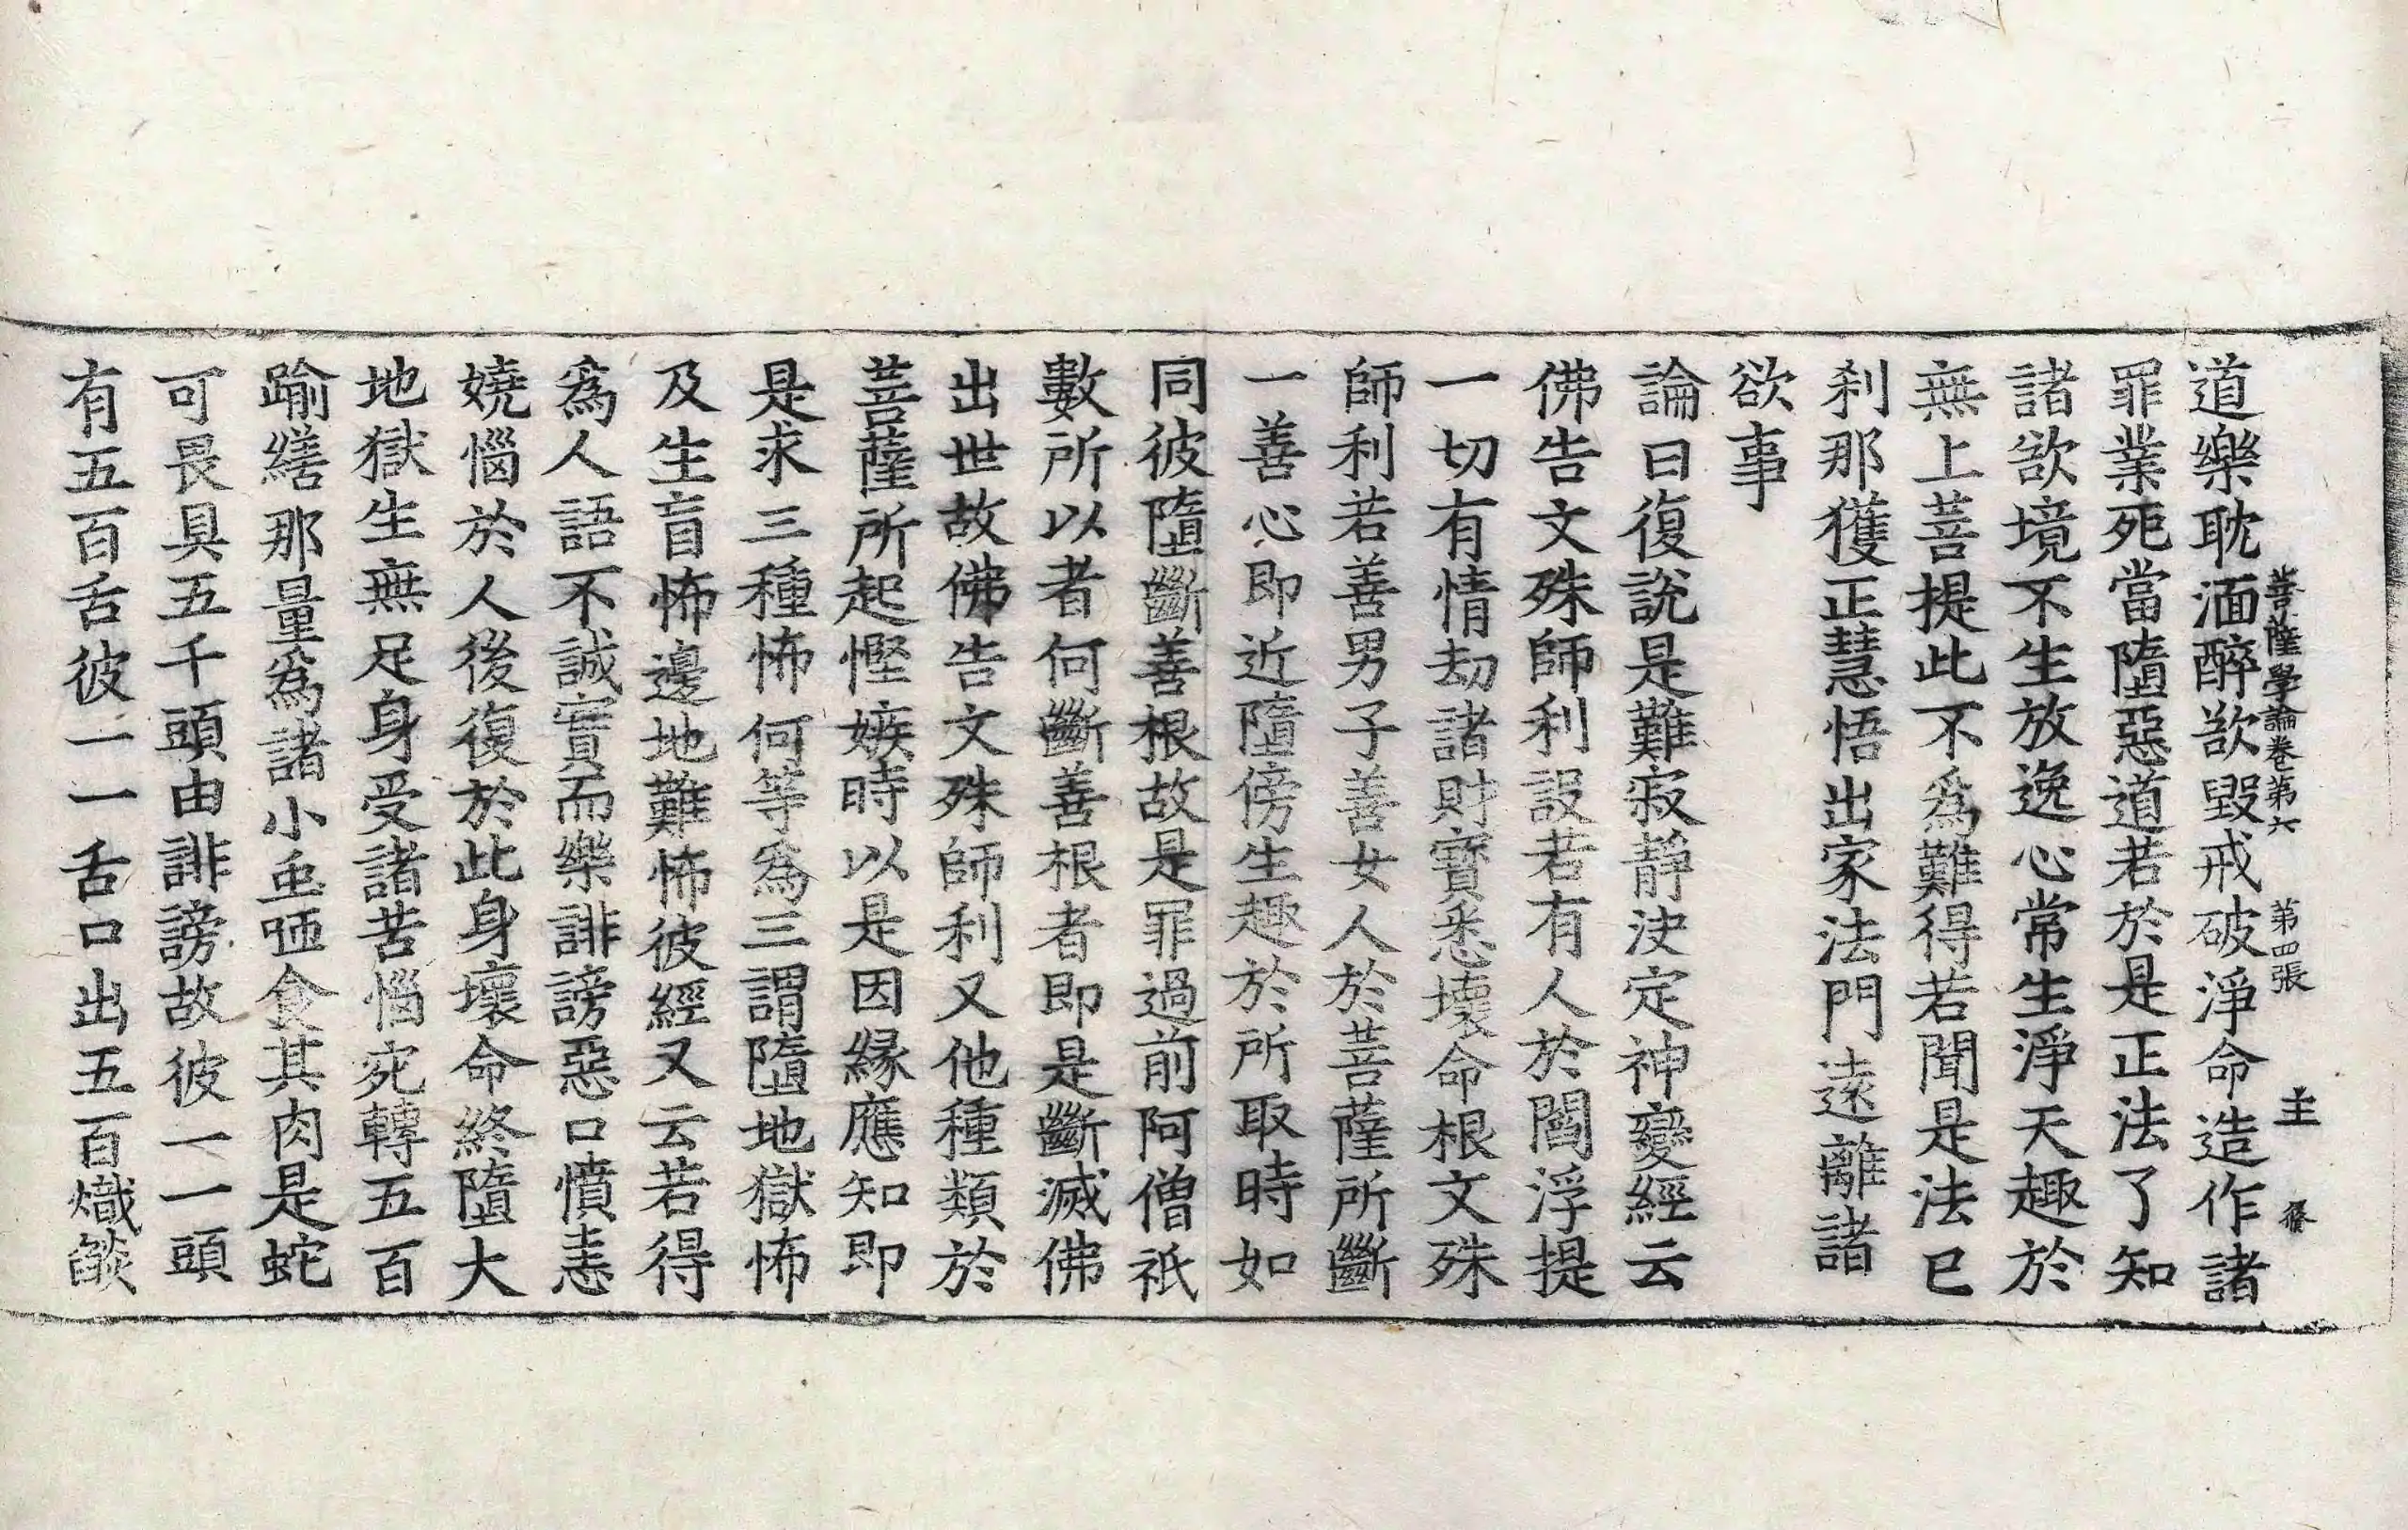 道樂耽湎醉欲毀戒破淨命造作諸
菩薩學論卷第六 第四張 主
罪業死當墮惡道若於是正法了知
諸欲境不生放逸心常生淨天趣於
無上菩提此不為難得若聞是法已
刹那獲正慧悟出家法門遠離諸
欲事
論曰復說是難寂靜決定神變經云
佛告文殊師利設若有人於閻浮提
一切有情劫諸財寶悉壞命根文殊
師利若善男子善女人於菩薩所斷
一善心即近墮傍生趣於所取時如
同彼墮斷善根故是罪過前阿僧祇
數所以者何斷善根者即是斷滅佛
出世故佛告文殊師利又他種類於
菩薩所起慳嫉時以是因緣應知即
是求三種怖何等為三謂墮地獄怖
及生盲怖邊地難怖彼經又云若得
為人語不誠實而樂誹謗惡口憤恚
嬈惱於人後復於此身壞命終墮大
地獄生無足身受諸苦惱宛轉五百
踰繕那量為諸小虫咂食其肉是蛇
可畏具五千頭由誹謗故彼一一頭
有五百舌彼一一舌口出五百熾燄